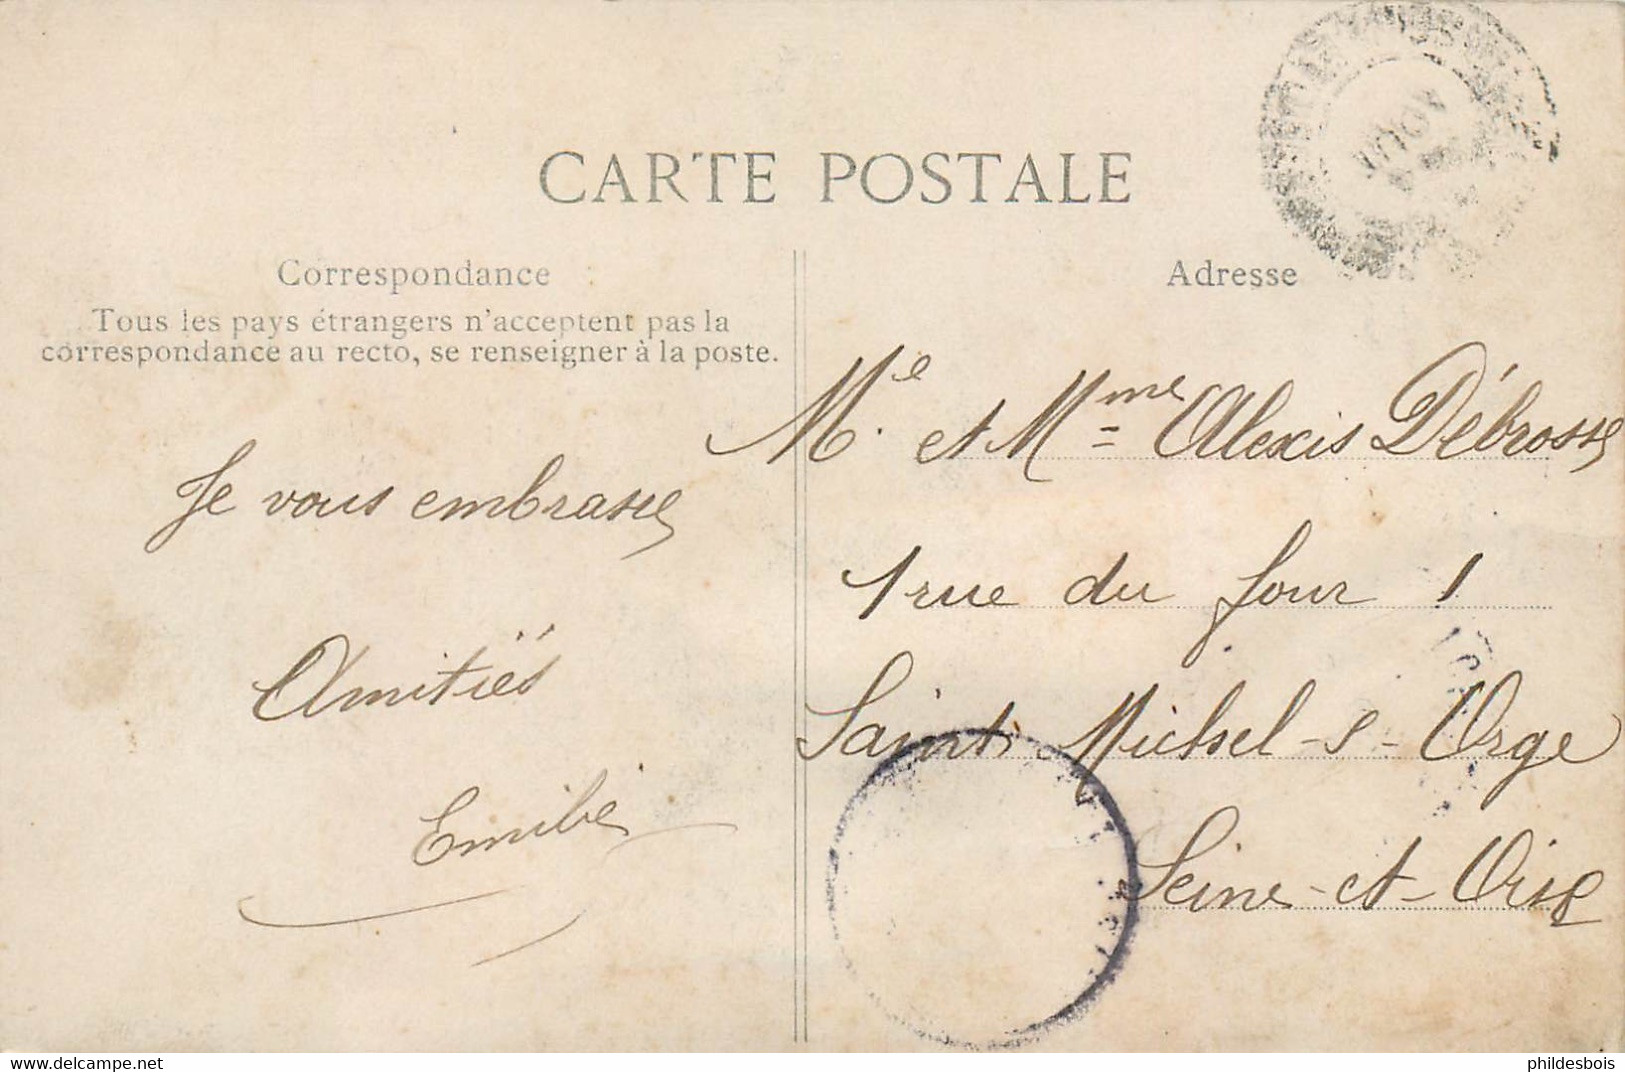 CARTE POSTALE
Correspondance
Tous les pays étrangers n'acceptent pas la
correspondance au recto, se renseigner à la poste.
Je vous embrasse
Amitiés
Emilie
Adresse
Mr. et Mme Alexis Débrosse
1 rue du four 1
Saint Michel-s-Orge
Seine-et-Oise
https://www.delcampe.net
phildesbois